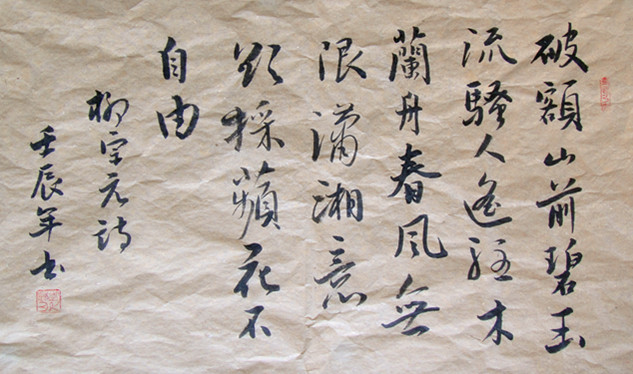 破額山前碧玉
流騷人遙駐木
蘭舟春風無
限瀟湘意
欲採蘋花不
自由
柳宗元詩
壬辰年書